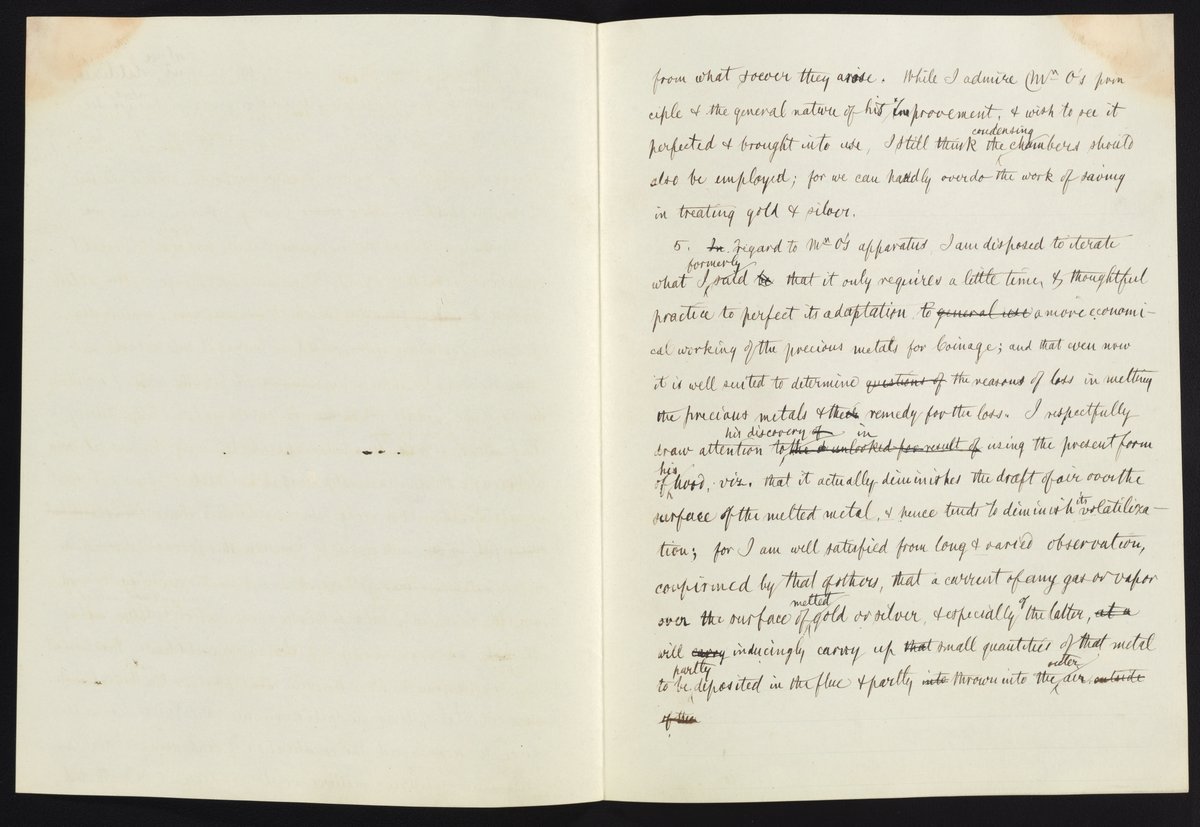 from what soever they arose. While I admire Mr O's prin
ciple & the general nature of his improvement, & wish to see it
condensing
perfected & brought into use, I still think the chambers should
also be employed; for we can hardly overdo the work of saving
in treating gold & silver.
5. In regard to Mr O's apparatus I am disposed to iterate
formerly
what I said be that it only requires a little time, & thoughtful
practice to perfect its adaptation to general use a more economi-
cal working of the precious metals for Coinage; and that even now
it is well suited to determine questions of the reasons of loss in melting
the precious metals & their remedy for the loss. I respectfully
his discovery of in
draw attention to the unlooked for result of using the present form
his
of hood, viz. that it actually diminishes the draft of air over the
surface of the melted metal, & hence tends to diminish its volatiliza-
tion; for I am well satisfied from long & varied observation,
confirmed by that of others, that a current of any gas or vapor
melted
over the surface of gold or silver, & especially of the latter, at a
will carry inducingly carry up that small quantities of that metal
partly outer
to be deposited in the flue & partly into thrown into the air outside
of the